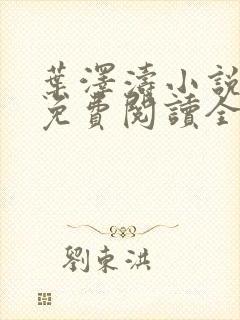 葉澤濤小説
免費閱讀全
劉東洪